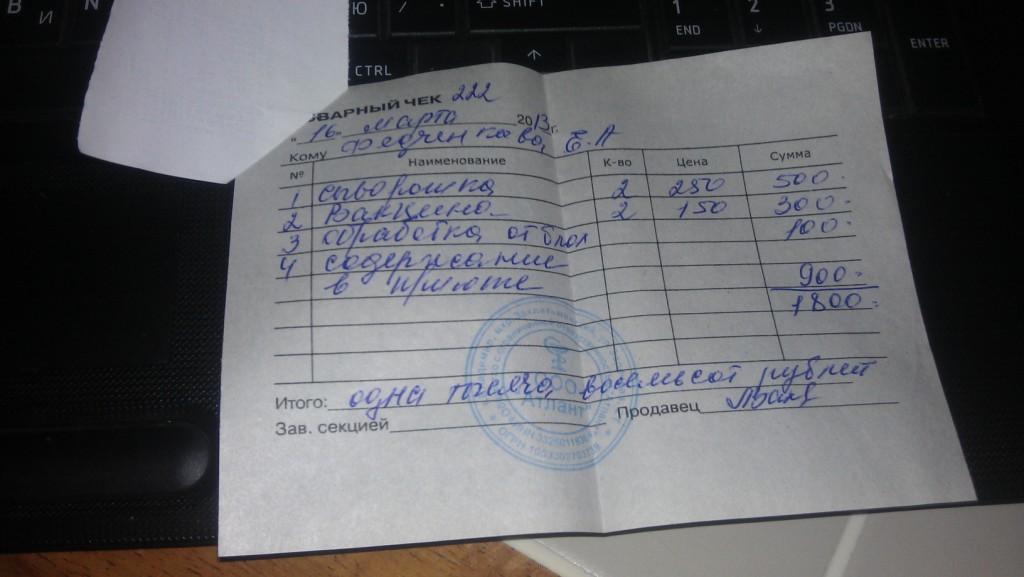 В
И
N
Ю
/
.
SHIFT
1
END
2
↓
3
PGDN
ENTER
CTRL
↑
ВАРНЫЙ ЧЕК 222
"16" марта 2013 г.
Кому Федченкова Е.А
№ Наименование К-во Цена Сумма
1 2 250 500-
2 Вакцина 2 150 300-
3 обработка от блох 100-
4 содержание
в приюте 900-
1800-
Итого: одна тысяча восемьсот рублей
Зав. секцией Продавец
Атлант